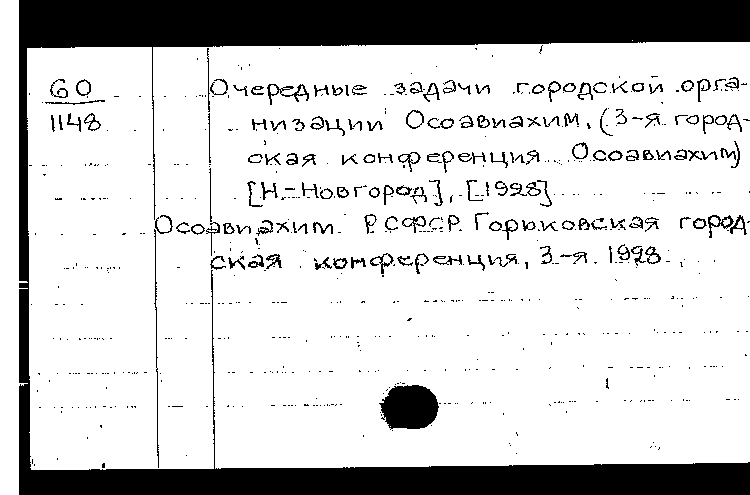 60
1148
Очередные задачи городской орга-
низации Осоавиахим. (3-я город-
ская конференция Осоавиахим)
[Н.-Новгород], [1928]
Осоавиахим. РСФСР. Горьковская город-
ская конференция, 3-я. 1928.